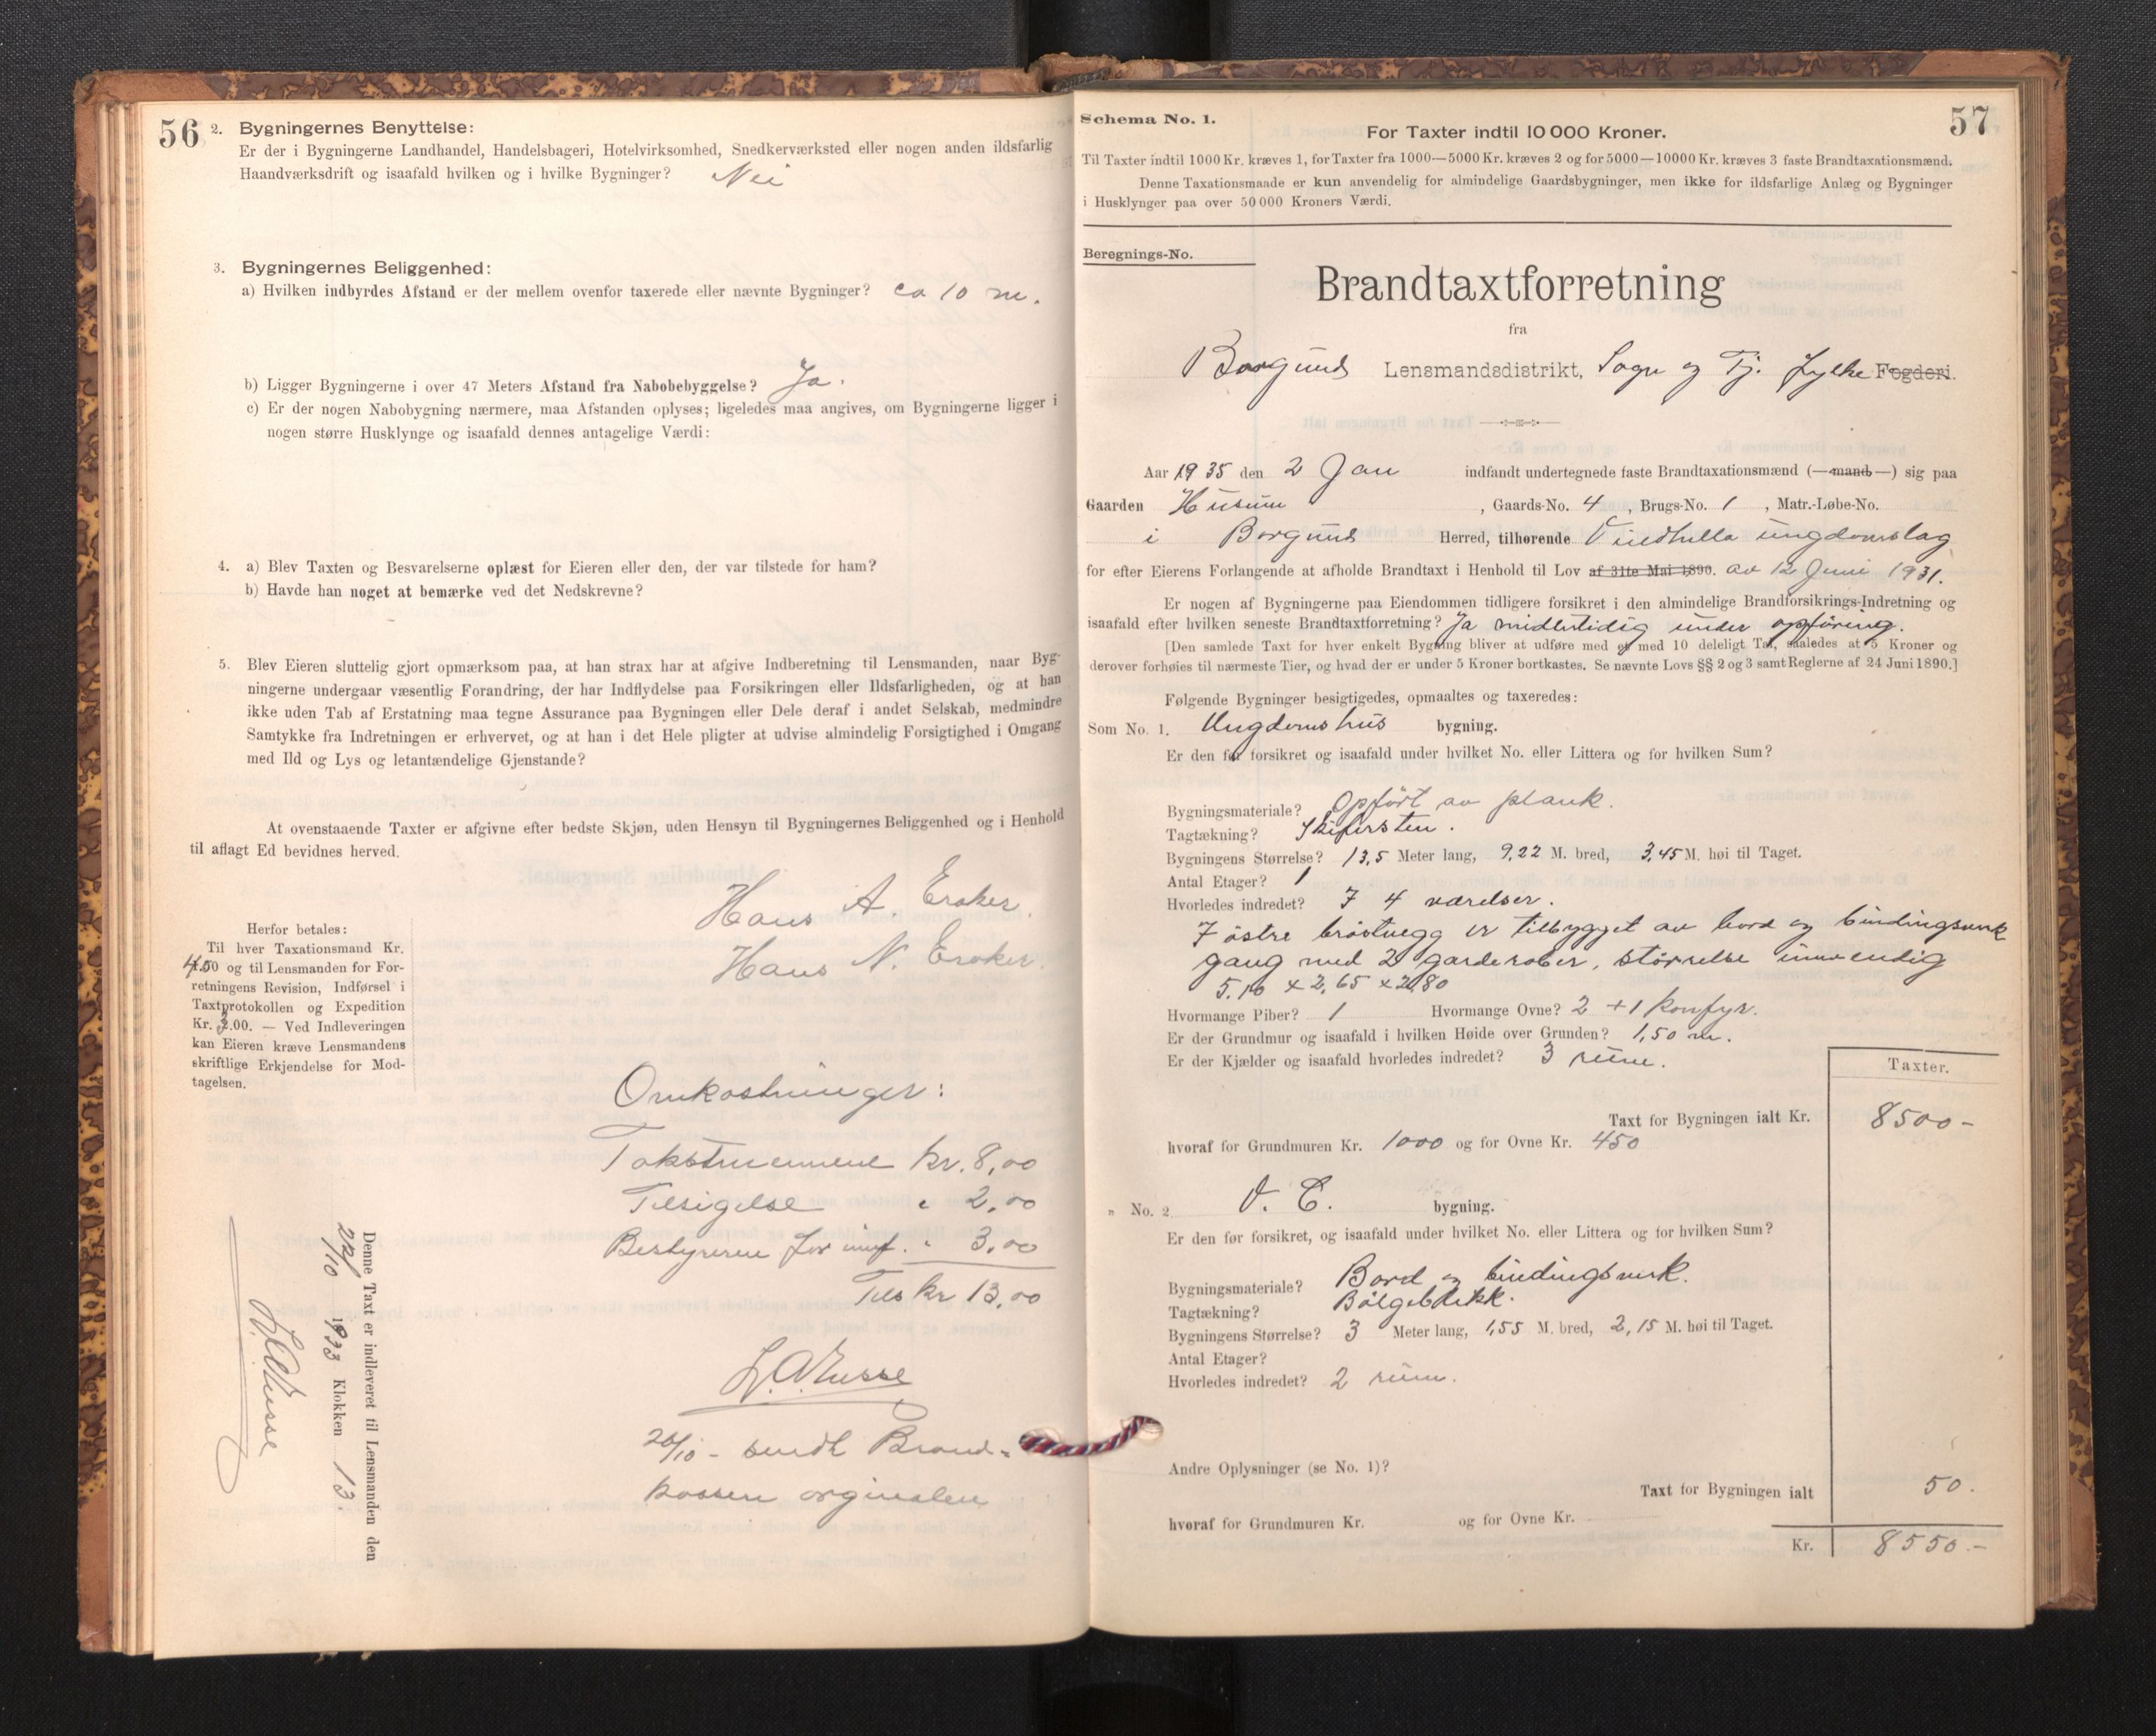 56
2. Bygningernes Benyttelse:
Er der i Bygningerne Landhandel, Handelsbageri, Hotelvirksomhed, Snedkerværksted eller nogen anden ildsfarlig
Haandværksdrift og isaafald hvilken og i hvilke Bygninger? Nei
3. Bygningernes Beliggenhed:
a) Hvilken indbyrdes Afstand er der mellem ovenfor taxerede eller nævnte Bygninger? ca 10 m.
b) Ligger Bygningerne i over 47 Meters Afstand fra Nabobebyggelse? Ja.
c) Er der nogen Nabobygning nærmere, maa Afstanden oplyses; ligeledes maa angives, om Bygningerne ligger i
nogen større Husklynge og isaafald dennes antagelige Værdi:
4. a) Blev Taxten og Besvarelserne oplæst for Eieren eller den, der var tilstede for ham?
b) Havde han noget at bemærke ved det Nedskrevne?
5. Blev Eieren sluttelig gjort opmærksom paa, at han strax har at afgive Indberetning til Lensmanden, naar Byg-
ningerne undergaar væsentlig Forandring, der har Indflydelse paa Forsikringen eller Ildsfarligheden, og at han
ikke uden Tab af Erstatning maa tegne Assurance paa Bygningen eller Dele deraf i andet Selskab, medmindre
Samtykke fra Indretningen er erhvervet, og at han i det Hele pligter at udvise almindelig Forsigtighed i Omgang
med Ild og Lys og letantændelige Gjenstande?
At ovenstaaende Taxter er afgivne efter bedste Skjøn, uden Hensyn til Bygningernes Beliggenhed og i Henhold
til aflagt Ed bevidnes herved.
Hans A. Eraker.
Hans N. Eraker.
Herfor betales:
Til hver Taxationsmand Kr.
4.50 og til Lensmanden for For-
retningens Revision, Indførsel i
Taxtprotokollen og Expedition
Kr. 3.00. — Ved Indleveringen
kan Eieren kræve Lensmandens
skriftlige Erkjendelse for Mod-
tagelsen.
Omkostninger:
Takstmennene kr. 8,00
Tilsigelse " 2,00
Bestyreren for innf. " 3,00
Tils kr 13,00
20/10 - sendt Brand-
kassen orginalen
Denne Taxt er indleveret til Lensmanden den
22/10 1933 Klokken 13.
57
Schema No. 1.
For Taxter indtil 10 000 Kroner.
Til Taxter indtil 1000 Kr. kræves 1, for Taxter fra 1000—5000 Kr. kræves 2 og for 5000—10000 Kr. kræves 3 faste Brandtaxationsmænd.
Denne Taxationsmaade er kun anvendelig for almindelige Gaardsbygninger, men ikke for ildsfarlige Anlæg og Bygninger
i Husklynger paa over 50 000 Kroners Værdi.
Beregnings-No.
Brandtaxtforretning
fra
Borgund Lensmandsdistrikt, Sogn og Fj. Fylke Fogderi.
Aar 1935 den 2 Jan indfandt undertegnede faste Brandtaxationsmænd (—mand—) sig paa
Gaarden Husum, Gaards-No. 4, Brugs-No. 1, Matr.-Løbe-No.
i Borgund Herred, tilhørende Vindhella ungdomslag
for efter Eierens Forlangende at afholde Brandtaxt i Henhold til Lov af 31te Mai 1890. av 12 Juni 1931.
Er nogen af Bygningerne paa Eiendommen tidligere forsikret i den almindelige Brandforsikrings-Indretning og
isaafald efter hvilken seneste Brandtaxtforretning? Ja midlertidig under opføring.
[Den samlede Taxt for hver enkelt Bygning bliver at udføre med et med 10 deleligt Tal, saaledes at 5 Kroner og
derover forhøies til nærmeste Tier, og hvad der er under 5 Kroner bortkastes. Se nævnte Lovs §§ 2 og 3 samt Reglerne af 24 Juni 1890.]
Følgende Bygninger besigtigedes, opmaaltes og taxeredes:
Som No. 1. Ungdomshus bygning.
Er den før forsikret og isaafald under hvilket No. eller Littera og for hvilken Sum?
Bygningsmateriale? Opført av plank.
Tagtækning? Skifersten.
Bygningens Størrelse? 13,5 Meter lang, 9,22 M. bred, 3,45 M. høi til Taget.
Antal Etager? 1
Hvorledes indredet? I 4 værelser.
I östre bröstvegg er tilbygget av bord og bindingsverk
gang med 2 garderober, störrelse innvendig
5.10 x 2,65 x 2,80
Hvormange Piber? 1 Hvormange Ovne? 2 + 1 komfyr.
Er der Grundmur og isaafald i hvilken Høide over Grunden? 1,50 m.
Er der Kjælder og isaafald hvorledes indredet? 3 rum.
Taxter.
Taxt for Bygningen ialt Kr. 8500-
hvoraf for Grundmuren Kr. 1000 og for Ovne Kr. 450
" No. 2 V. C. bygning.
Er den før forsikret, og isaafald under hvilket No. eller Littera og for hvilken Sum?
Bygningsmateriale? Bord og bindingsverk.
Tagtækning? Bölgeblikk.
Bygningens Størrelse? 3 Meter lang, 1,55 M. bred, 2,15 M. høi til Taget.
Antal Etager?
Hvorledes indredet? 2 rum.
Andre Oplysninger (se No. 1)?
Taxt for Bygningen ialt 50.
hvoraf for Grundmuren Kr. og for Ovne Kr.
Kr. 8550.-